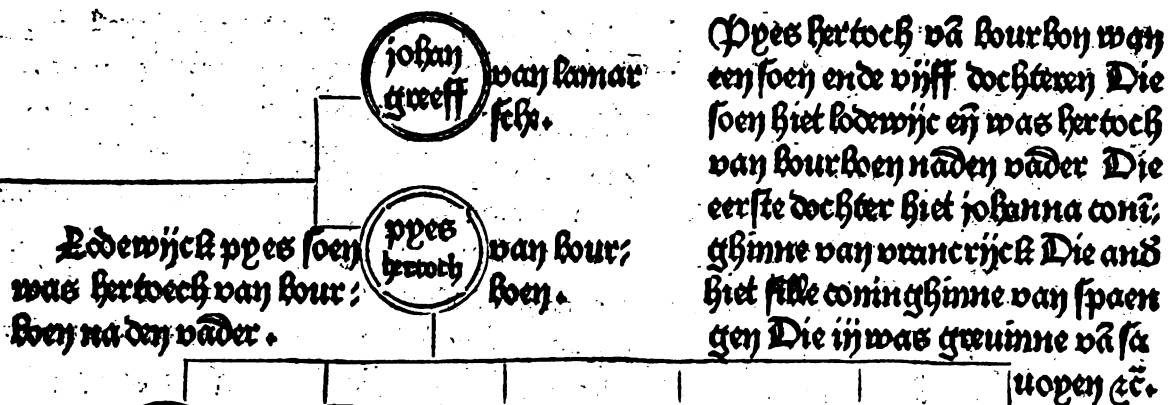 johan
greeff
van lamar
sche.
pyes
hertoch
van bour:
boen.
Lodewijck pyes soen
was hertoech van bour:
boen na den vader.
Pyes hertoch vā bourbon wan
een soen ende vijff dochteren Die
soen hiet lodewijc eñ was hertoch
van bourboen nāden vāder Die
eerste dochter hiet johanna conī:
ghinne van vrancrijck Die and
hiet coninghinne van spaen
gen Die iij was greuinne vā sa
uoyen ⁊c̄.